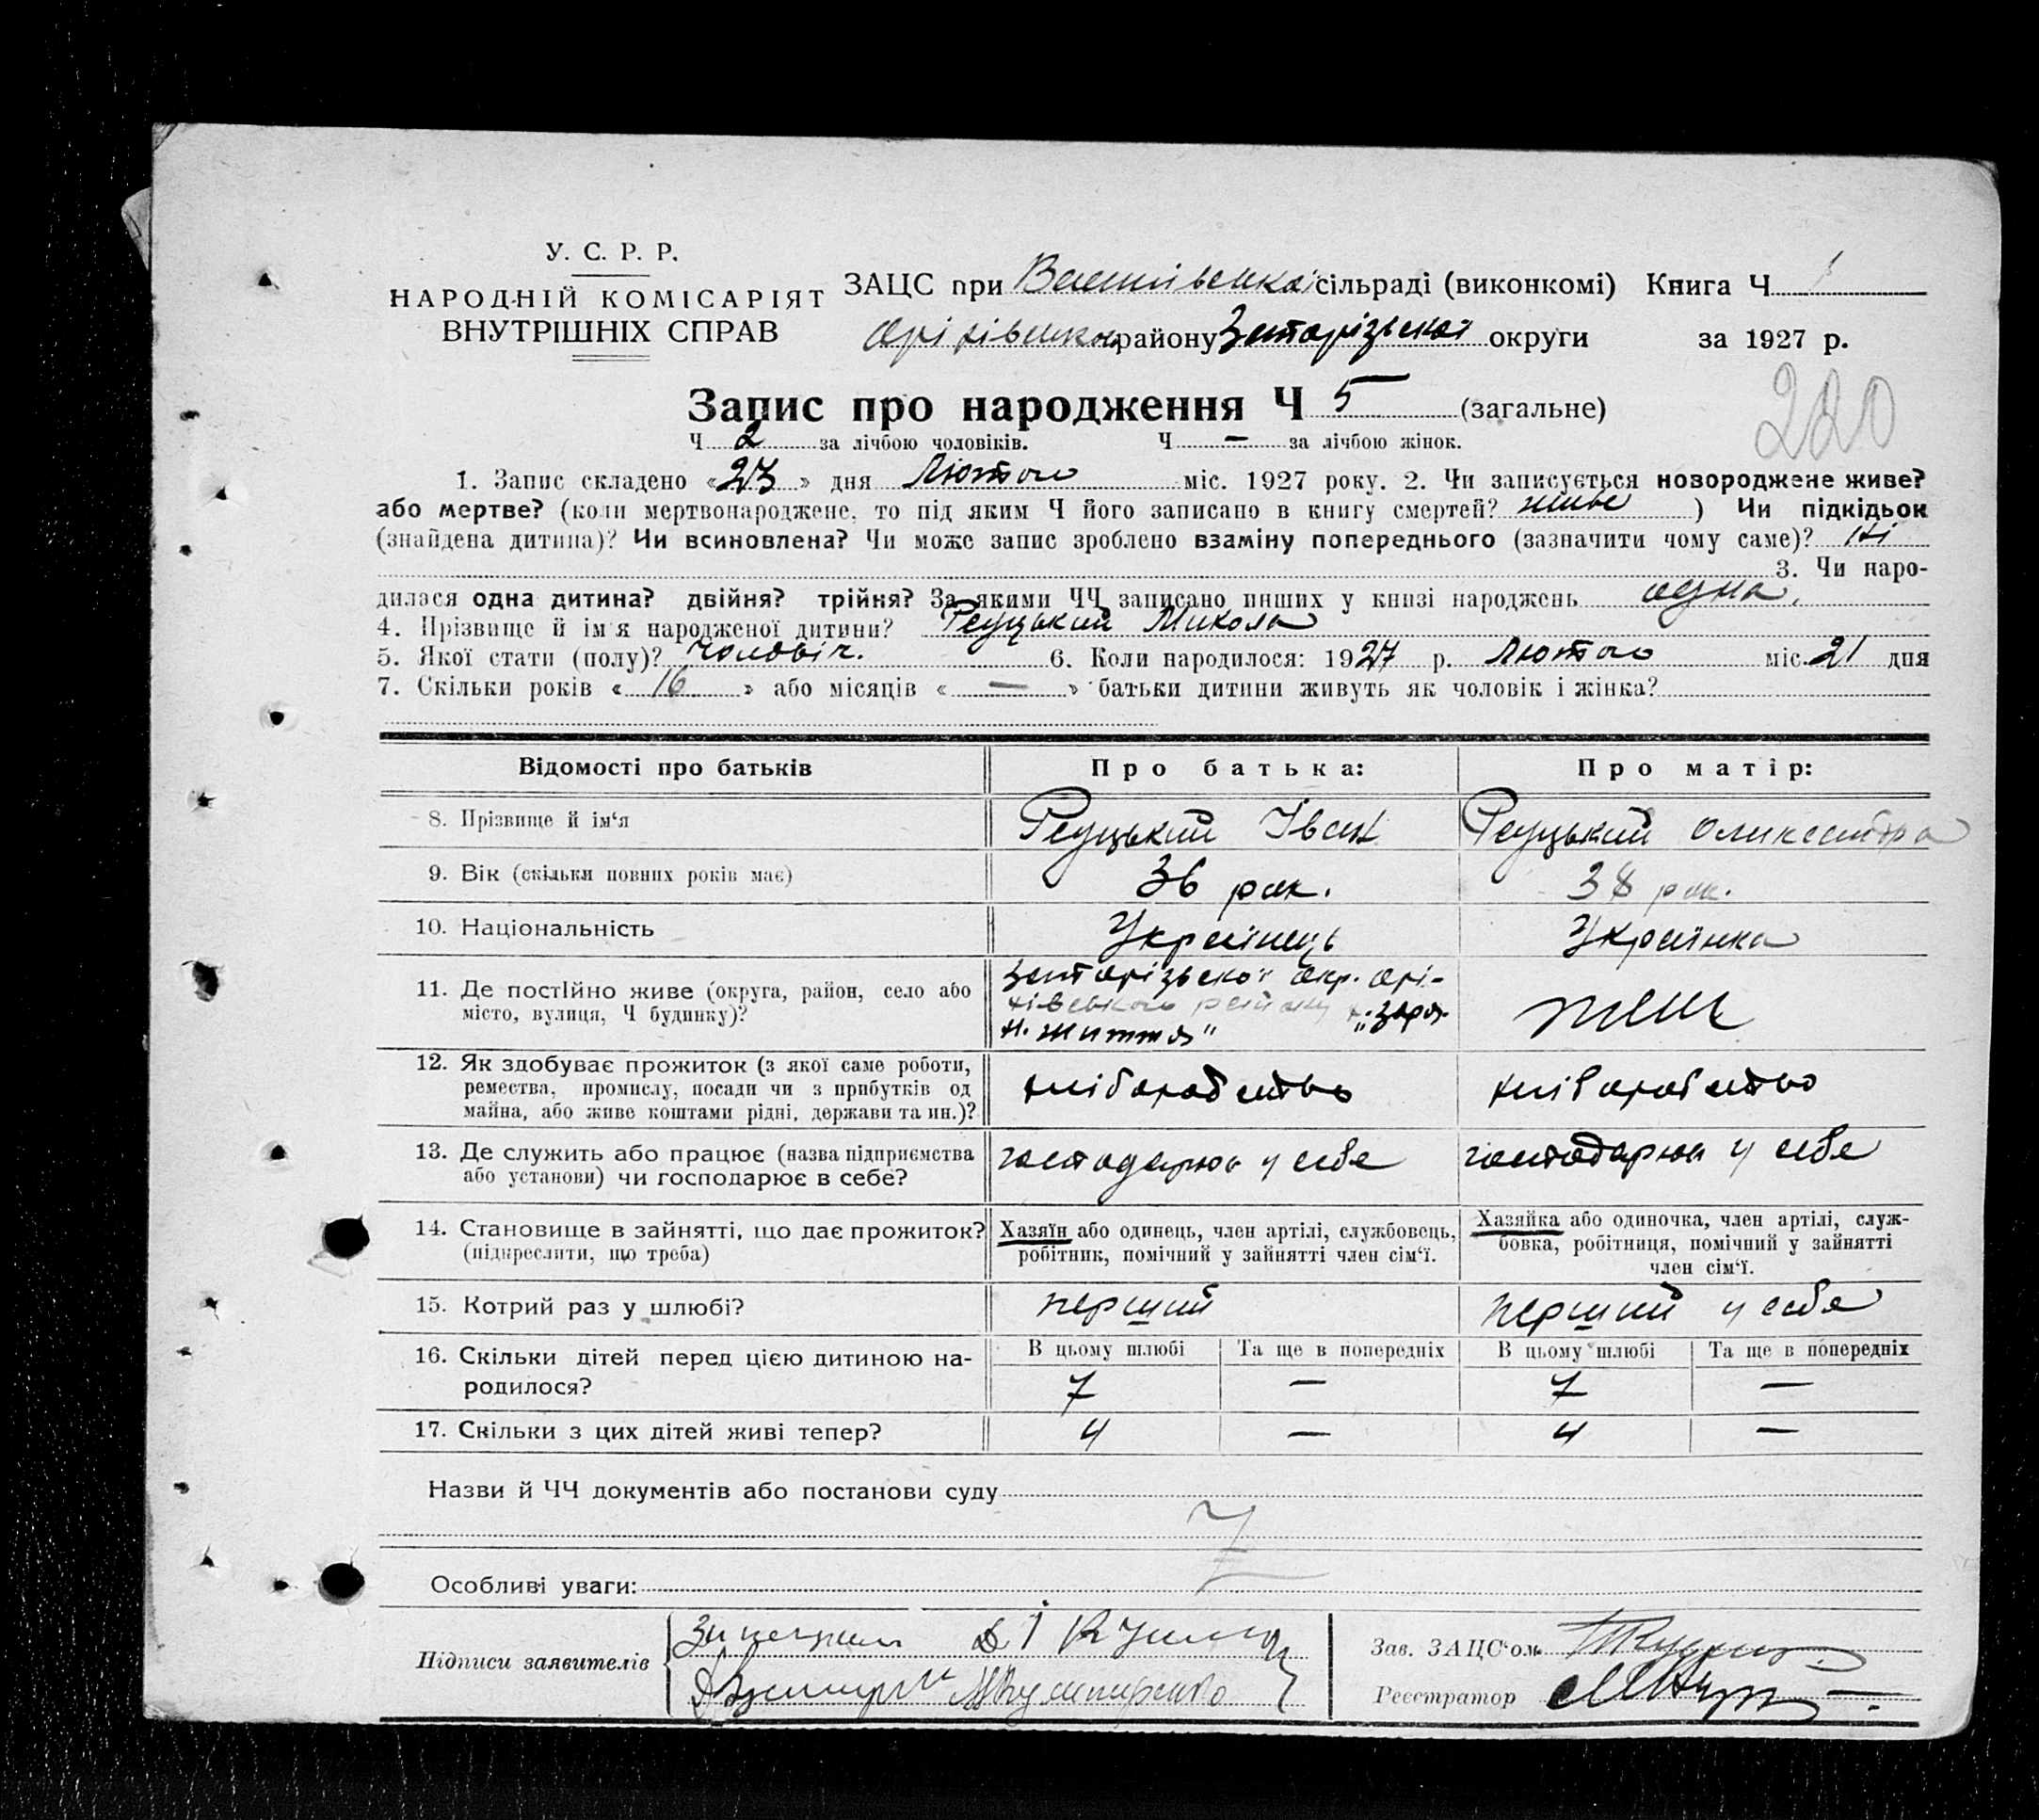 У. С. Р. Р.
НАРОДНІЙ КОМІСАРІЯТ
ВНУТРІШНІХ СПРАВ
ЗАЦС при сільраді (виконкомі) Книга Ч 1
Оріхівського району Запорізької округи за 1927 р.
220
Запис про народження Ч 5 (загальне)
Ч 2 за лічбою чоловіків. Ч — за лічбою жінок.
1. Запис складено «23» дня Лютого міс. 1927 року. 2. Чи записується новороджене живе?
або мертве? (коли мертвонароджене, то під яким Ч його записано в книгу смертей? живе ) Чи підкідьок
(знайдена дитина)? Чи всиновлена? Чи може запис зроблено взаміну попереднього (зазначити чому саме)? Ні
3. Чи наро-
дилася одна дитина? двійня? трійня? За якими ЧЧ записано инших у книзі народжень одна.
4. Прізвище й ім'я народженої дитини? Реуцький Микола
5. Якої стати (полу)? чоловіч. 6. Коли народилося: 1927 р. Лютого міс. 21 дня
7. Скільки років «16» або місяців «—» батьки дитини живуть як чоловік і жінка?
Відомості про батьків Про батька: Про матір:
8. Прізвище й ім'я Реуцький Іван Реуцький
9. Вік (скільки повних років має) 36 рок. 38 рок.
10. Національність Українець Українка
11. Де постійно живе (округа, район, село або
місто, вулиця, Ч будинку)?
Запорізької окр. Орі-
хівського району х. "Заря
н. життя"
12. Як здобуває прожиток (з якої саме роботи,
ремества, промислу, посади чи з прибутків од
майна, або живе коштами рідні, держави та ин.)?
хліборобство хліборобство
13. Де служить або працює (назва підприємства
або установи) чи господарює в себе?
господарює у себе господарює у себе
14. Становище в зайнятті, що дає прожиток?
(підкреслити, що треба)
Хазяїн або одинець, член артілі, службовець,
робітник, помічний у зайнятті член сім'ї.
Хазяйка або одиночка, член артілі, служ-
бовка, робітниця, помічний у зайнятті
член сім'ї.
15. Котрий раз у шлюбі? перший перший у себе
16. Скільки дітей перед цією дитиною на-
родилося?
В цьому шлюбі Та ще в попередніх В цьому шлюбі Та ще в попередніх
7 — 7 —
17. Скільки з цих дітей живі тепер? 4 — 4 —
Назви й ЧЧ документів або постанови суду
Особливі уваги:
Підписи заявителів
Зав. ЗАЦС'ом
Реєстратор